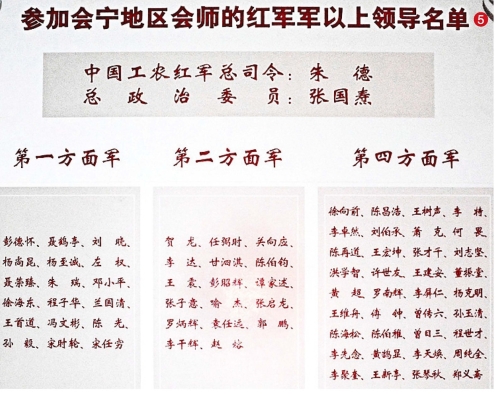 参加会宁地区会师的红军军以上领导名单 5
中国工农红军总司令：朱 德
总政治委员：张国焘
第一方面军
彭德怀、聂鹤亭、刘 晓、
杨尚昆、杨至诚、左 权、
聂荣臻、朱 瑞、邓小平、
徐海东、程子华、兰国清、
王首道、冯文彬、陈 光、
孙 毅、宋时轮、宋任穷
第二方面军
贺 龙、任弼时、关向应、
李 达、甘泗淇、陈伯钧、
王 震、彭绍辉、谭家述、
张子意、喻 杰、张启龙、
罗炳辉、袁任远、郭 鹏、
李干辉、赵 熔
第四方面军
徐向前、陈昌浩、王树声、李 特、
李卓然、刘伯承、萧 克、何 畏、
陈再道、王宏坤、张才千、刘志坚、
洪学智、许世友、王建安、董振堂、
黄 超、罗南辉、李屏仁、杨克明、
王维舟、傅 钟、曾传六、孙玉清、
陈海松、陈伯稚、曾日三、程世才、
李先念、黄鹄显、李天焕、周纯全、
李聚奎、王新亭、张琴秋、郑义斋